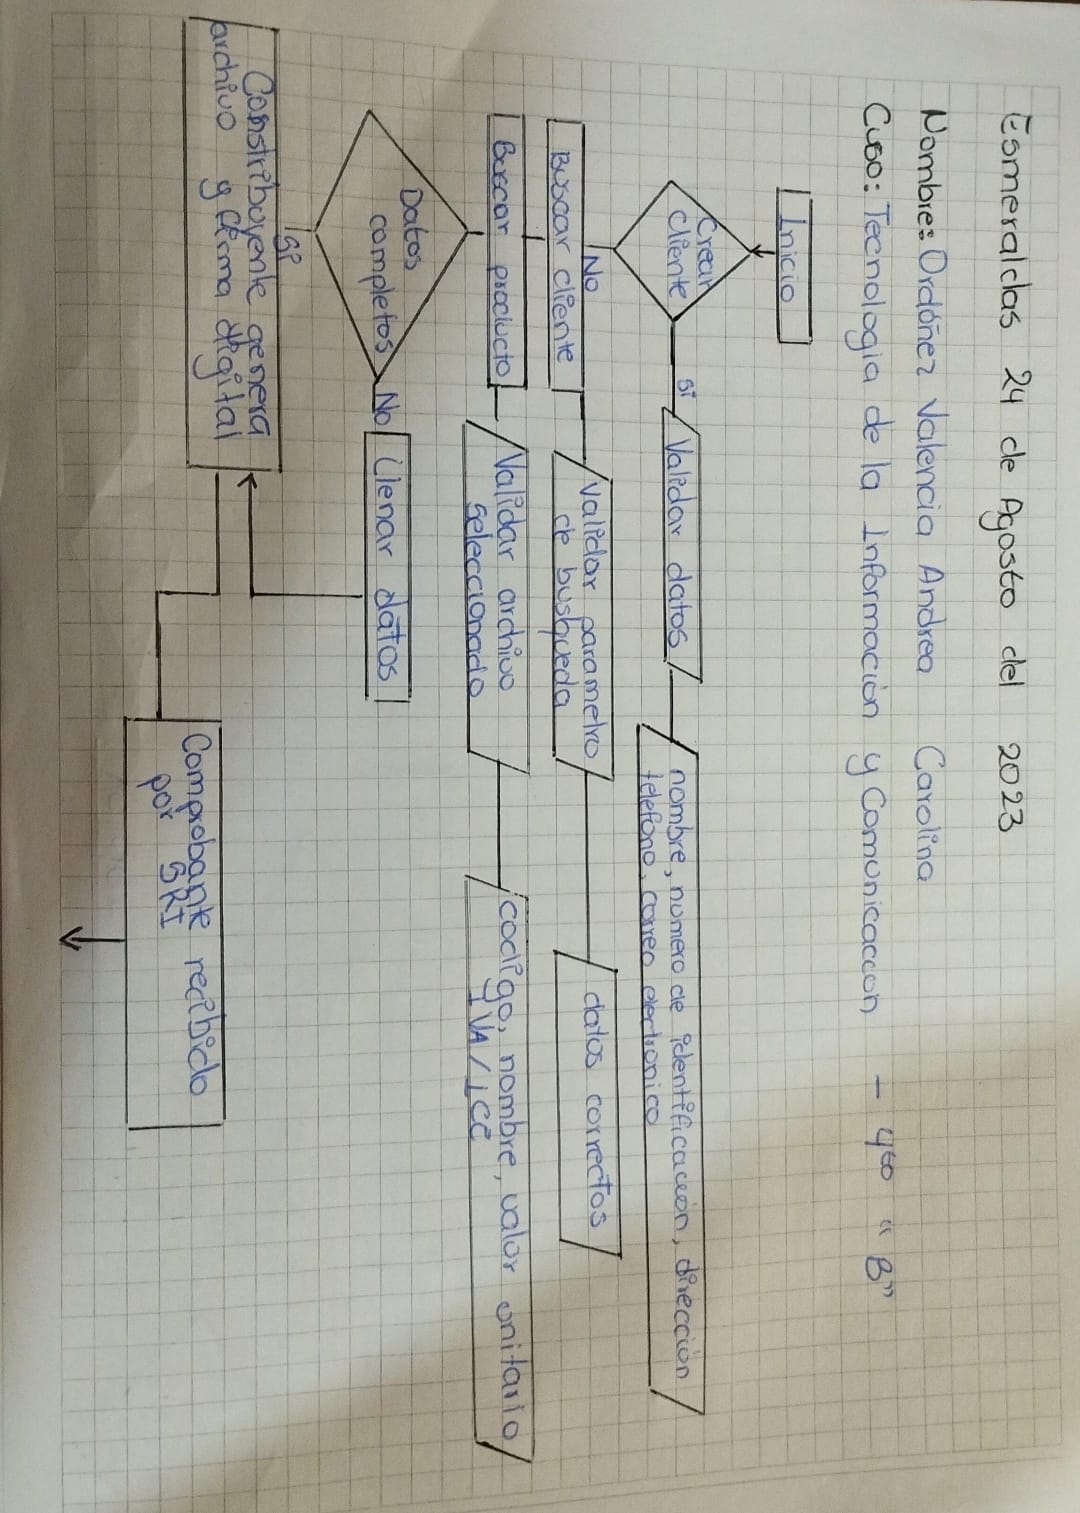 Esmeraldas 24 de Agosto del 2023
Nombre: Ordóñez Valencia Andrea Carolina
Cuso: Tecnologia de la Información y Comunicaccon - 4to "B"
Inicio
Crear
cliente
Si
Validar datos
nombre, numero de identificacuón, dirección
telefono, correo electronico
No
Buscar cliente
Validar parametro
de busqueda
datos correctos
Buscar producto
Validar archivo
seleccionado
codigo, nombre, valor unitario
IVA/ICE
Datos
completos
No
Llenar datos
Si
Constribuyente genera
archivo y firma digital
Comprobante recibido
por SRI